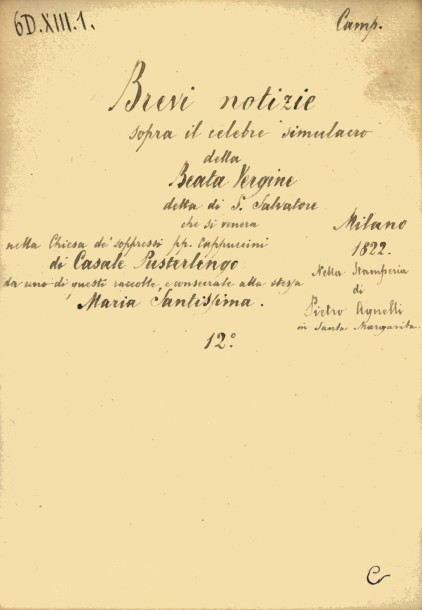 6D.XIII.1.
Camp.
Brevi notizie
sopra il celebre simulacro
della
Beata Vergine
detta di S. Salvatore
che si venera
nella Chiesa de' soppressi pp. Cappuccini
di Casale Pusterlengo
da uno di questi raccolte, e consecrate alla stessa
Maria Santissima.
Milano
1822.
Nella Stamperia
di
Pietro Agnelli
in Santa Margarita.
12°
C